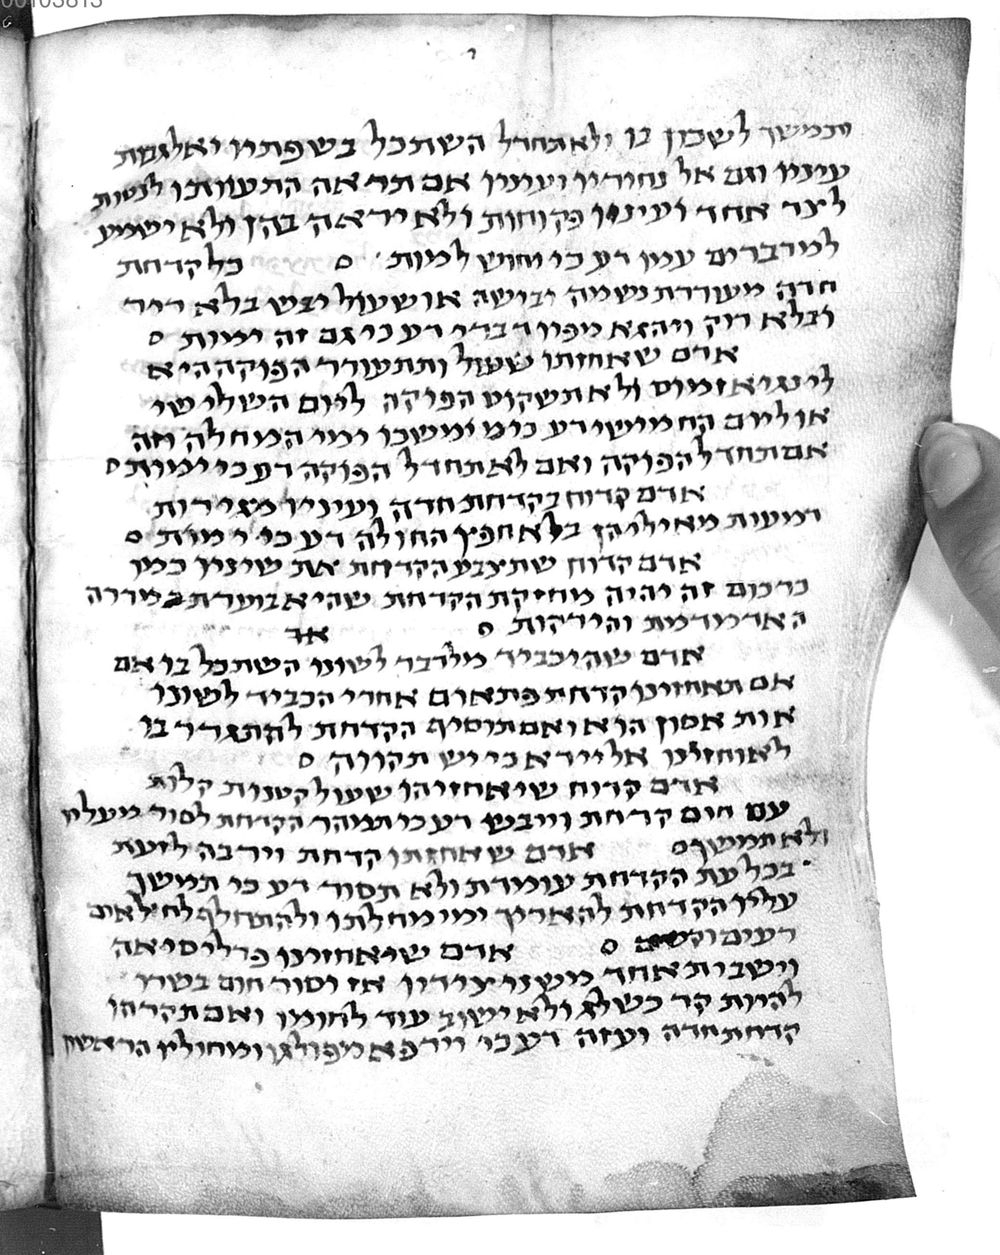 00103813
י
ותמשך לשכון בו ולא תחדל השתכל בשפתיו ואל גבות
עיניו וגם אל נחיריו ועיניו אם תראה התעוותו לנטות
לצד אחד ועיניו פקוחות ולא יראה בהן ולא ישמע
למדברים עמו דע כי יחוש למות ס כל קדחת
חדה מעוררת נשמה יבישה או שעול יבש בלא ריר
ובלא רוק ויהגא מפיו דברי דע כי גם זה ימות ס
אדם שאחזתו שעול ותתעורר הפוקה היא
לינגיאזמוס ולא תשקוט הפוקה ליום השלישי
או ליום החמישי דע כי מימשכו ימי המחלה וזה
אם תחדל הפוקה ואם לא תחדל הפוקה דע כי ימות ס
אדם קדוח בקדחת חדה ועיניו מגירות
דמעות מאיליהן בלא חפץ החולה דע כי ימות ס
אדם קדוח שתצבע הקדחת את שיניו כמו
כרכום זה יהיה מחזקת הקדחת שהיא בוערת במררה
האדמדמת והירקות ס אד
אדם שהיכביד מלדבר לשונו השתכל בו אם
אם תאחזינו קדחת פתאום אחרי הכביד לשונו
אות אסון הוא ואם תוסיף הקדחת להתגדר בו
לאוחזינו אל יירא כי יש תקווה ס
אדם קדוח שיאחזיהו שעול קטנות קלות
עם חום קדחת וייבש דע כי תמהר הקדחת לסור מעליו
ולא תמשך ס אדם שאחזתו קדחת וירבה לזעת
בכל עת הקדחת עומדת ולא תסור דע כי תמשך
עליו הקדחת להאריך ימי מחלתו ולהתחלף לחלאים
רעים וקשים ס אדם שיאחזינו פרליסיאה
וישבית אחד משני צידיו אז יסור חום בשרו
להיות קר כשלג ולא ישוב עוד לחומו ואם תקדהו
קדחת חדה ועזה דע כי וירפא מפולגו ומחוליו הראשון